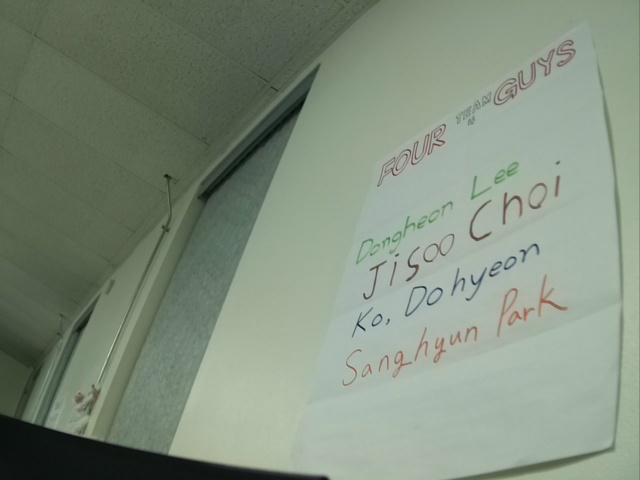 FOUR TEAM GUYS
Dongheon Lee
Jisoo Choi
Ko, Dohyeon
Sanghyun Park